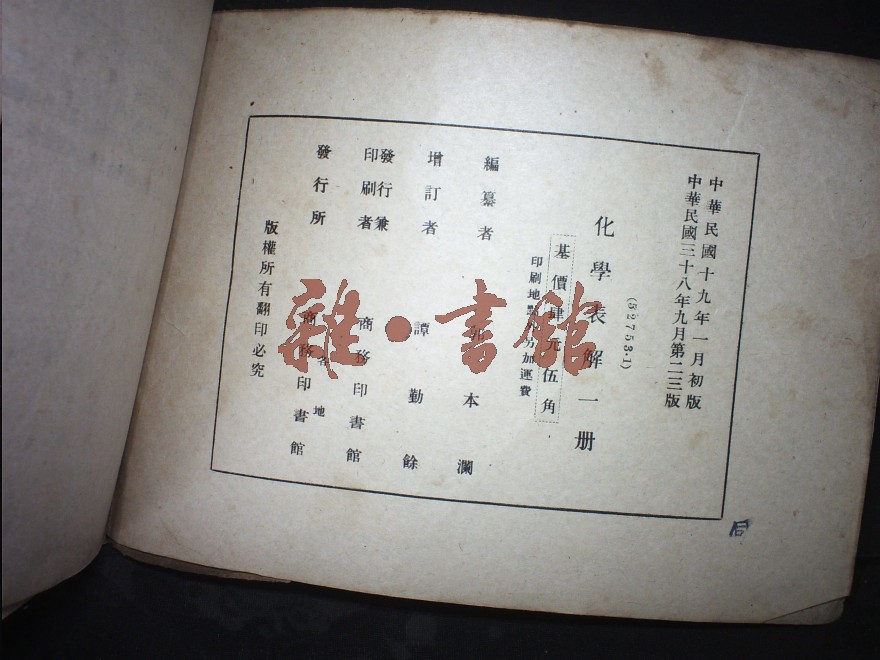 中華民國十九年一月初版
中華民國三十八年九月第二三版
(52753·1)
化學表解一册
基價肆元伍角
印刷地點外另加運費
編纂者 本瀾
增訂者 譚勤餘
發行兼
印刷者 商務印書館
各地
發行所 商務印書館
版權所有翻印必究
雜·書館
后